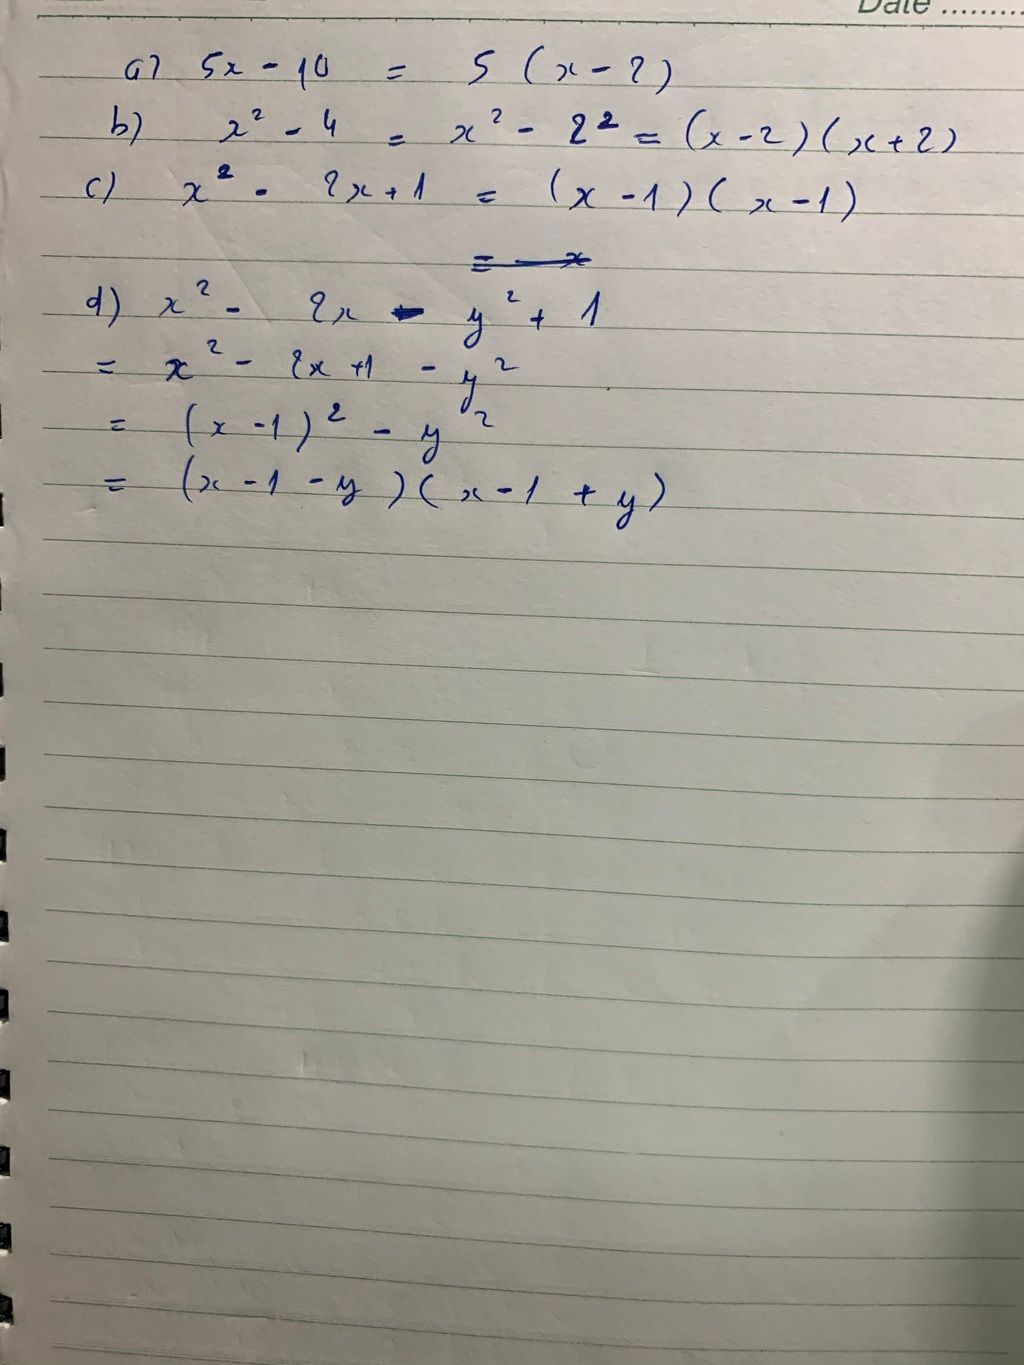 Date .........
a) 5x - 10 = 5 (x - 2)
b) x² - 4 = x² - 2² = (x - 2)(x + 2)
c) x² - 2x + 1 = (x - 1)(x - 1)
d) x² - 2x - y² + 1
= x² - 2x + 1 - y²
= (x - 1)² - y²
= (x - 1 - y)(x - 1 + y)